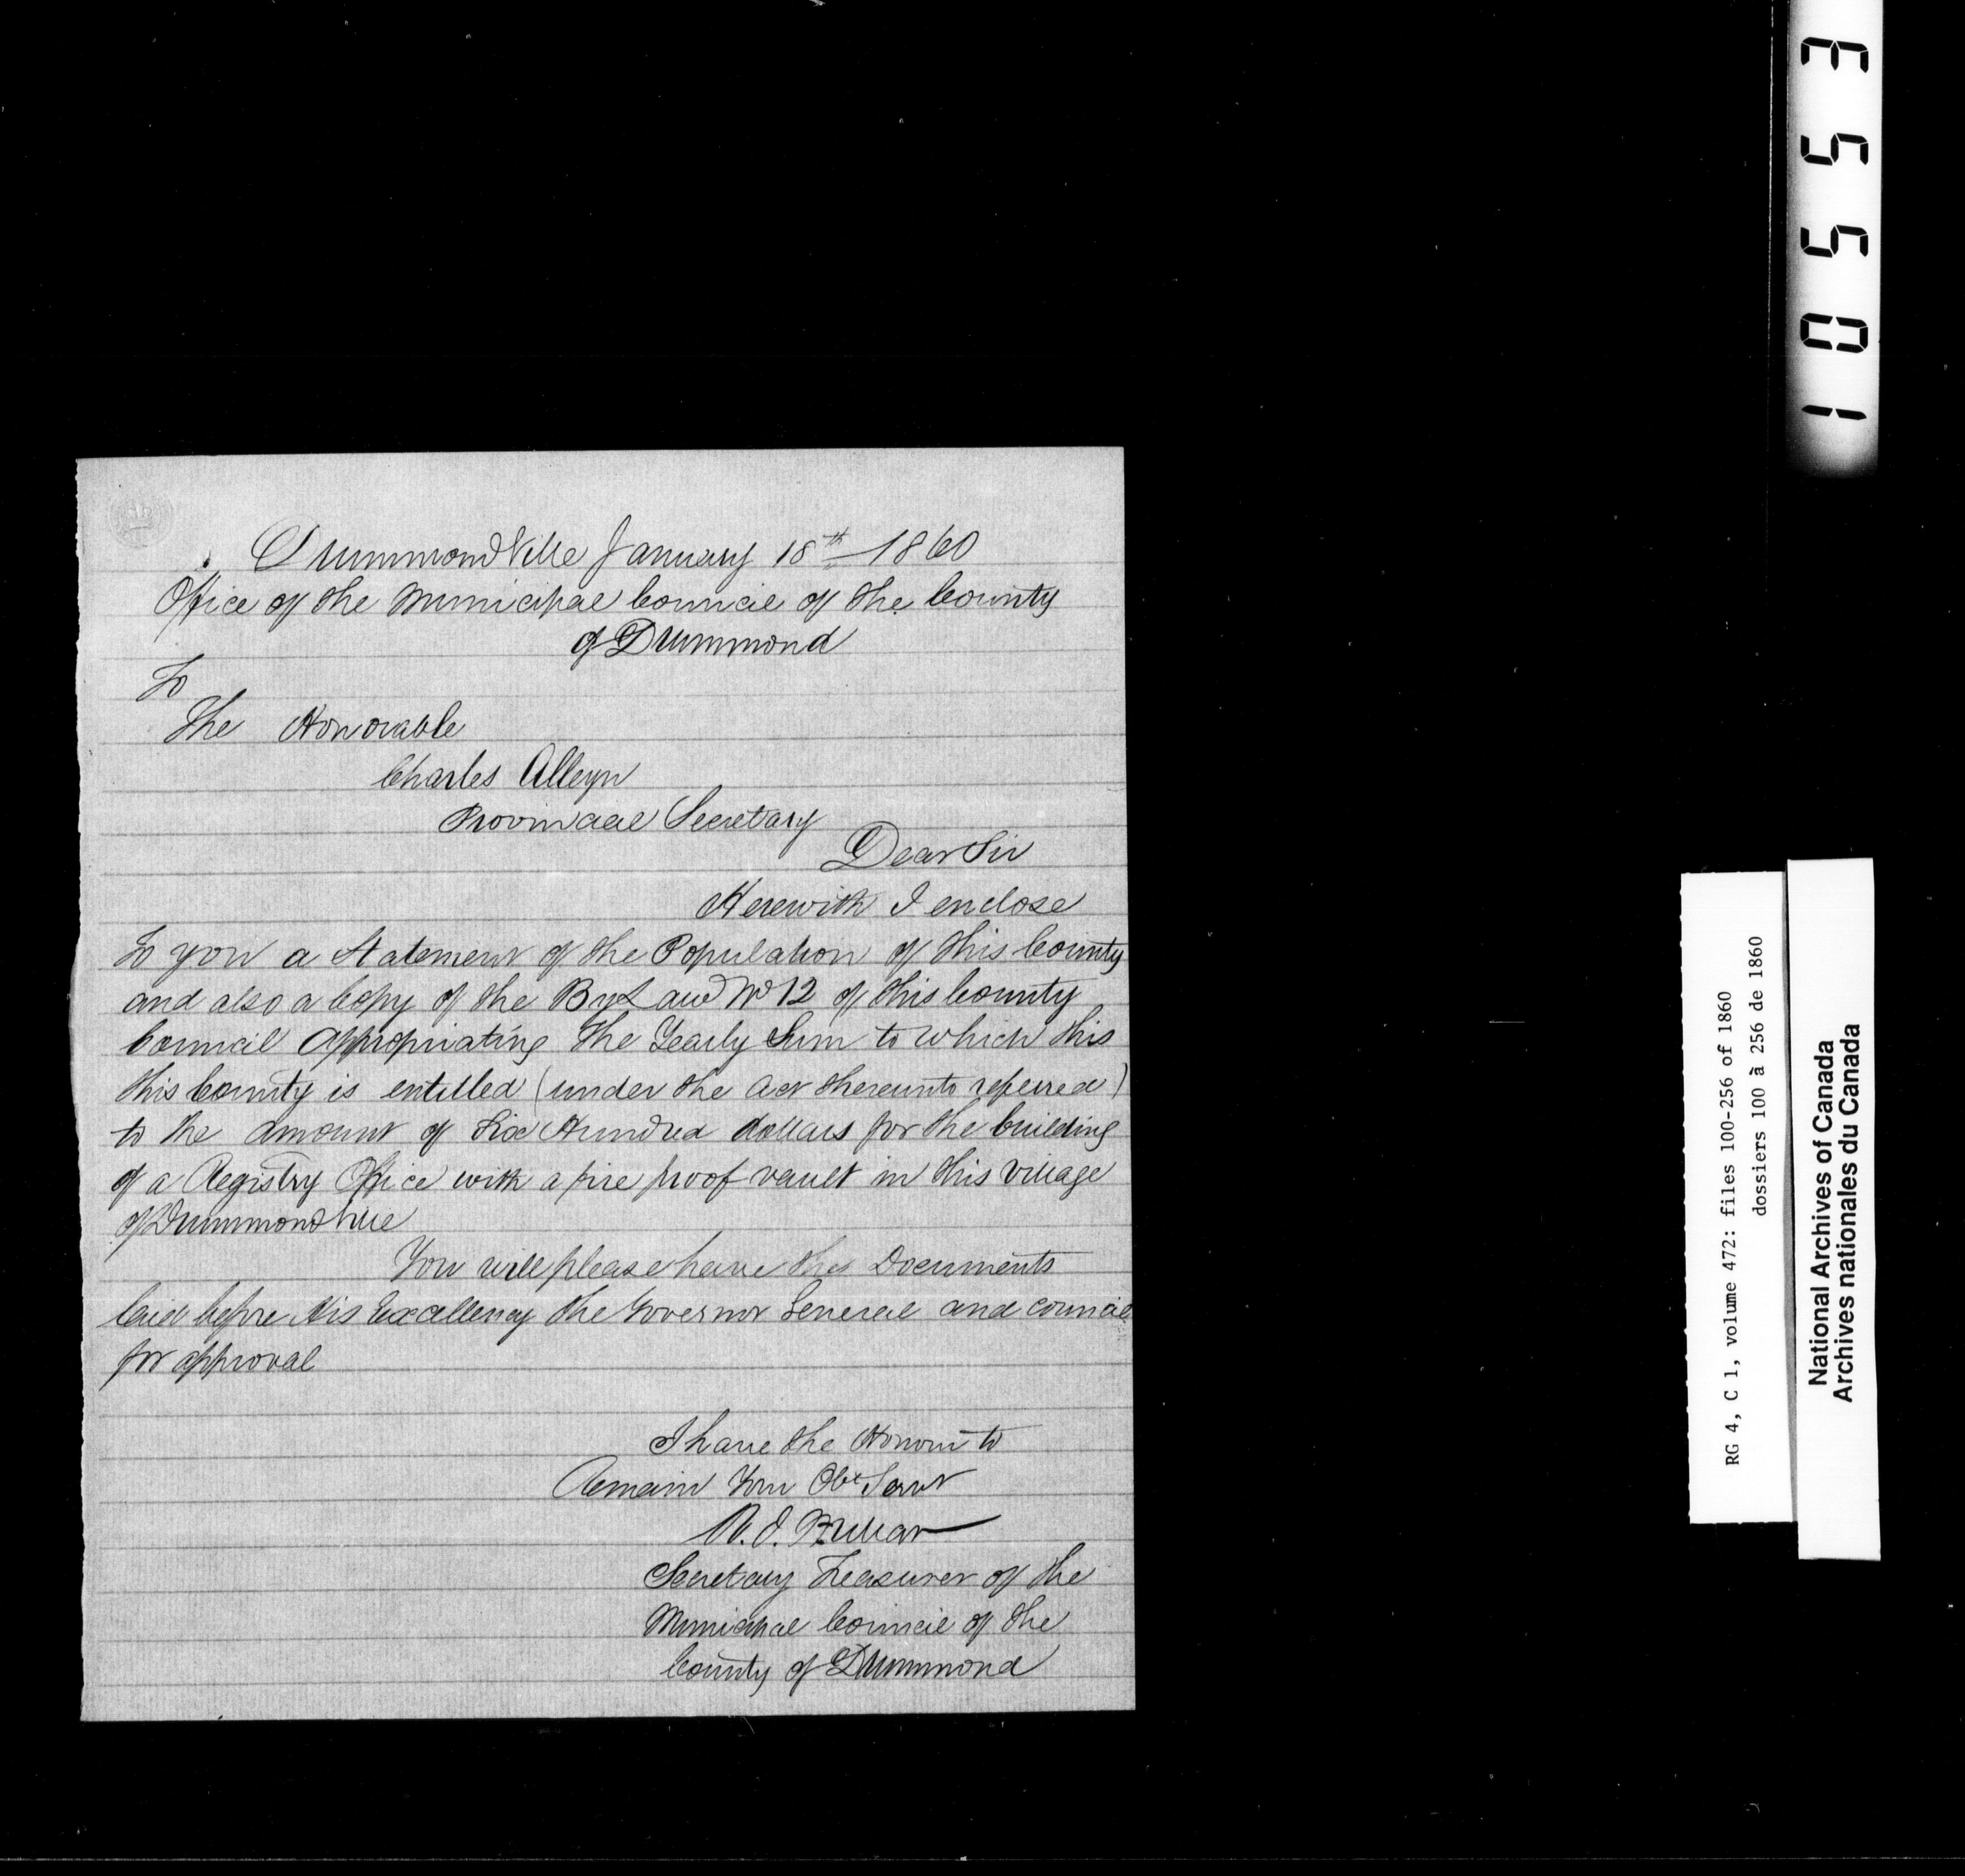 DrummondVille January 18th 1860
Office of the Municipal Council of the County
of Drummond
To
The Honorable
Charles Alleyn
Provincial Secretary
Dear Sir
Herewith I enclose
to you a Statement of the Population of this County
and also a Copy of the By Law No 12 of this County
Council Appropriating the Yearly Sum to which this
this County is entitled (under the Act thereunto referred)
to the amount of Six Hundred dollars for the building
of a Registry Office with a fire proof vault in this Village
of Drummondville
You will please have the Documents
laid before His Excellency the Governor General and council
for approval
I have the Honour to
Remain Your Obt Servt
Secretary Treasurer of the
Municipal Council of the
County of Drummond
10553
RG 4, C 1, volume 472: files 100-256 of 1860
dossiers 100 à 256 de 1860
National Archives of Canada
Archives nationales du Canada